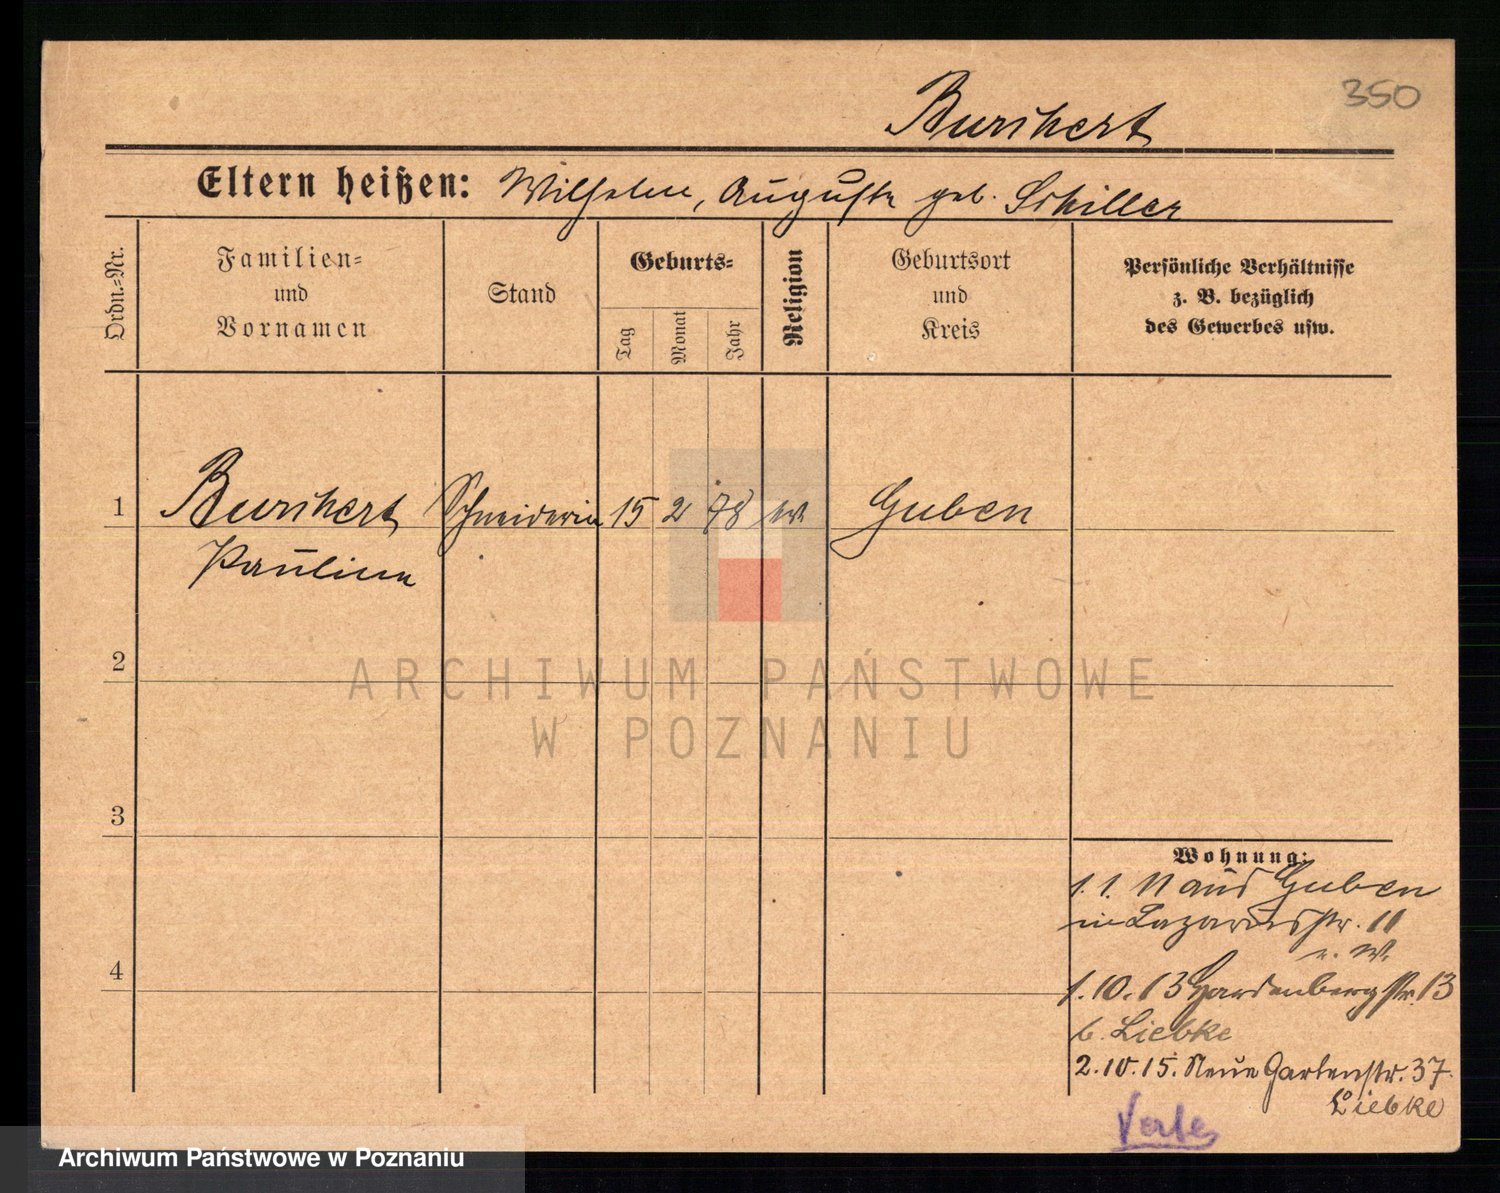 350
Burchert
Eltern heißen: Wilhelm, Auguste geb. Schiller
Ordn.-Nr.
Familien-
und
Vornamen
Stand
Geburts-
Tag
Monat
Jahr
Religion
Geburtsort
und
Kreis
Persönliche Verhältnisse
z. B. bezüglich
des Gewerbes usw.
1 Burchert Schneiderin 15 2 78 ev. Guben
Pauline
2
ARCHIWUM PAŃSTWOWE
W POZNANIU
3
Wohnung:
1. 1. 11 aus Guben
in Lazarusstr. 11
4
1.10.13 Hardenbergstr. 13
b. Liebke
2.10.15. Neue Gartenstr. 37.
Liebke
Archiwum Państwowe w Poznaniu